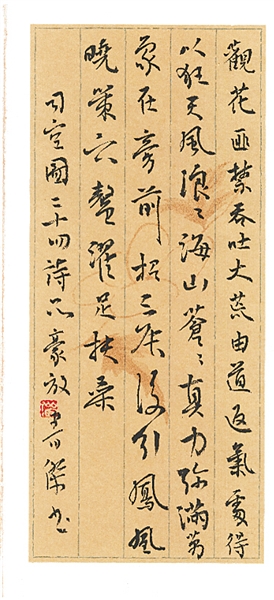 觀花匪禁吞吐大荒由道返氣處得
以狂天風浪〻海山蒼〻真力弥滿萬
象在旁前招三辰後引鳳凰
曉策六鰲濯足扶桑
司空圖二十四詩品豪放 傑书